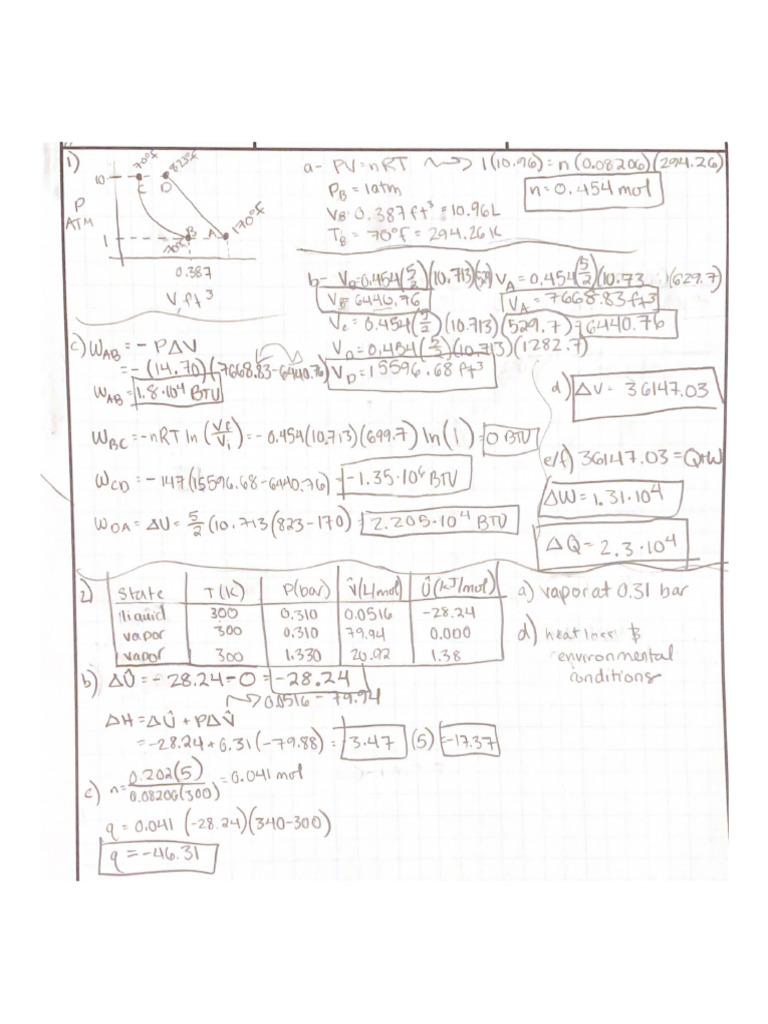 1)
70°F
823°F
10
C
D
P
ATM
B
A
170°F
1
70°F
0.387
V, ft³
a- PV=nRT ~> 1(10.96)=n(0.08206)(294.26)
P_B = 1atm
n=0.454 mol
V_B= 0.387ft³=10.96L
T_B = 70°F = 294.26K
b- V_B=0.454(5/2)(10.713)(529) V_A=0.454(5/2)(10.73)(629.7)
V_B=6440.76
V_A = 7668.83ft³
V_C= 0.454(5/2)(10.713)(529.7)=6440.76
V_D=0.454(5/2)(10.713)(1282.7)
V_D=15596.68ft³
c) W_AB = - PΔV
= -(14.70)(7668.83-6440.76)
W_AB=1.8·10⁴ BTU
W_BC=-nRT ln(Vf/Vi)=-0.454(10.713)(699.7) ln(1)=0 BTU
W_CD= -147(15596.68-6440.76)=-1.35·10⁶ BTU
W_DA= ΔU= 5/2(10.713(823-170)=2.205·10⁴ BTU
d) ΔU= 36147.03
e/f) 36147.03=Q+W
ΔW=1.31·10⁴
ΔQ=2.3·10⁴
2)
State T(K) P(bar) V̂(L/mol) Û(kJ/mol)
liquid 300 0.310 0.0516 -28.24
vapor 300 0.310 79.94 0.000
vapor 300 1.330 20.92 1.38
a) vapor at 0.31 bar
d) heat loss &
environmental
conditions
b) ΔÛ=-28.24-0=-28.24
~> 0.0516-79.94
ΔH=ΔÛ+PΔV̂
=-28.24+0.31(-79.88)=-3.47 (5)=-17.37
c) n=0.202(5)/0.08206(300)=0.041 mol
q=0.041 (-28.24)(340-300)
q=-46.31